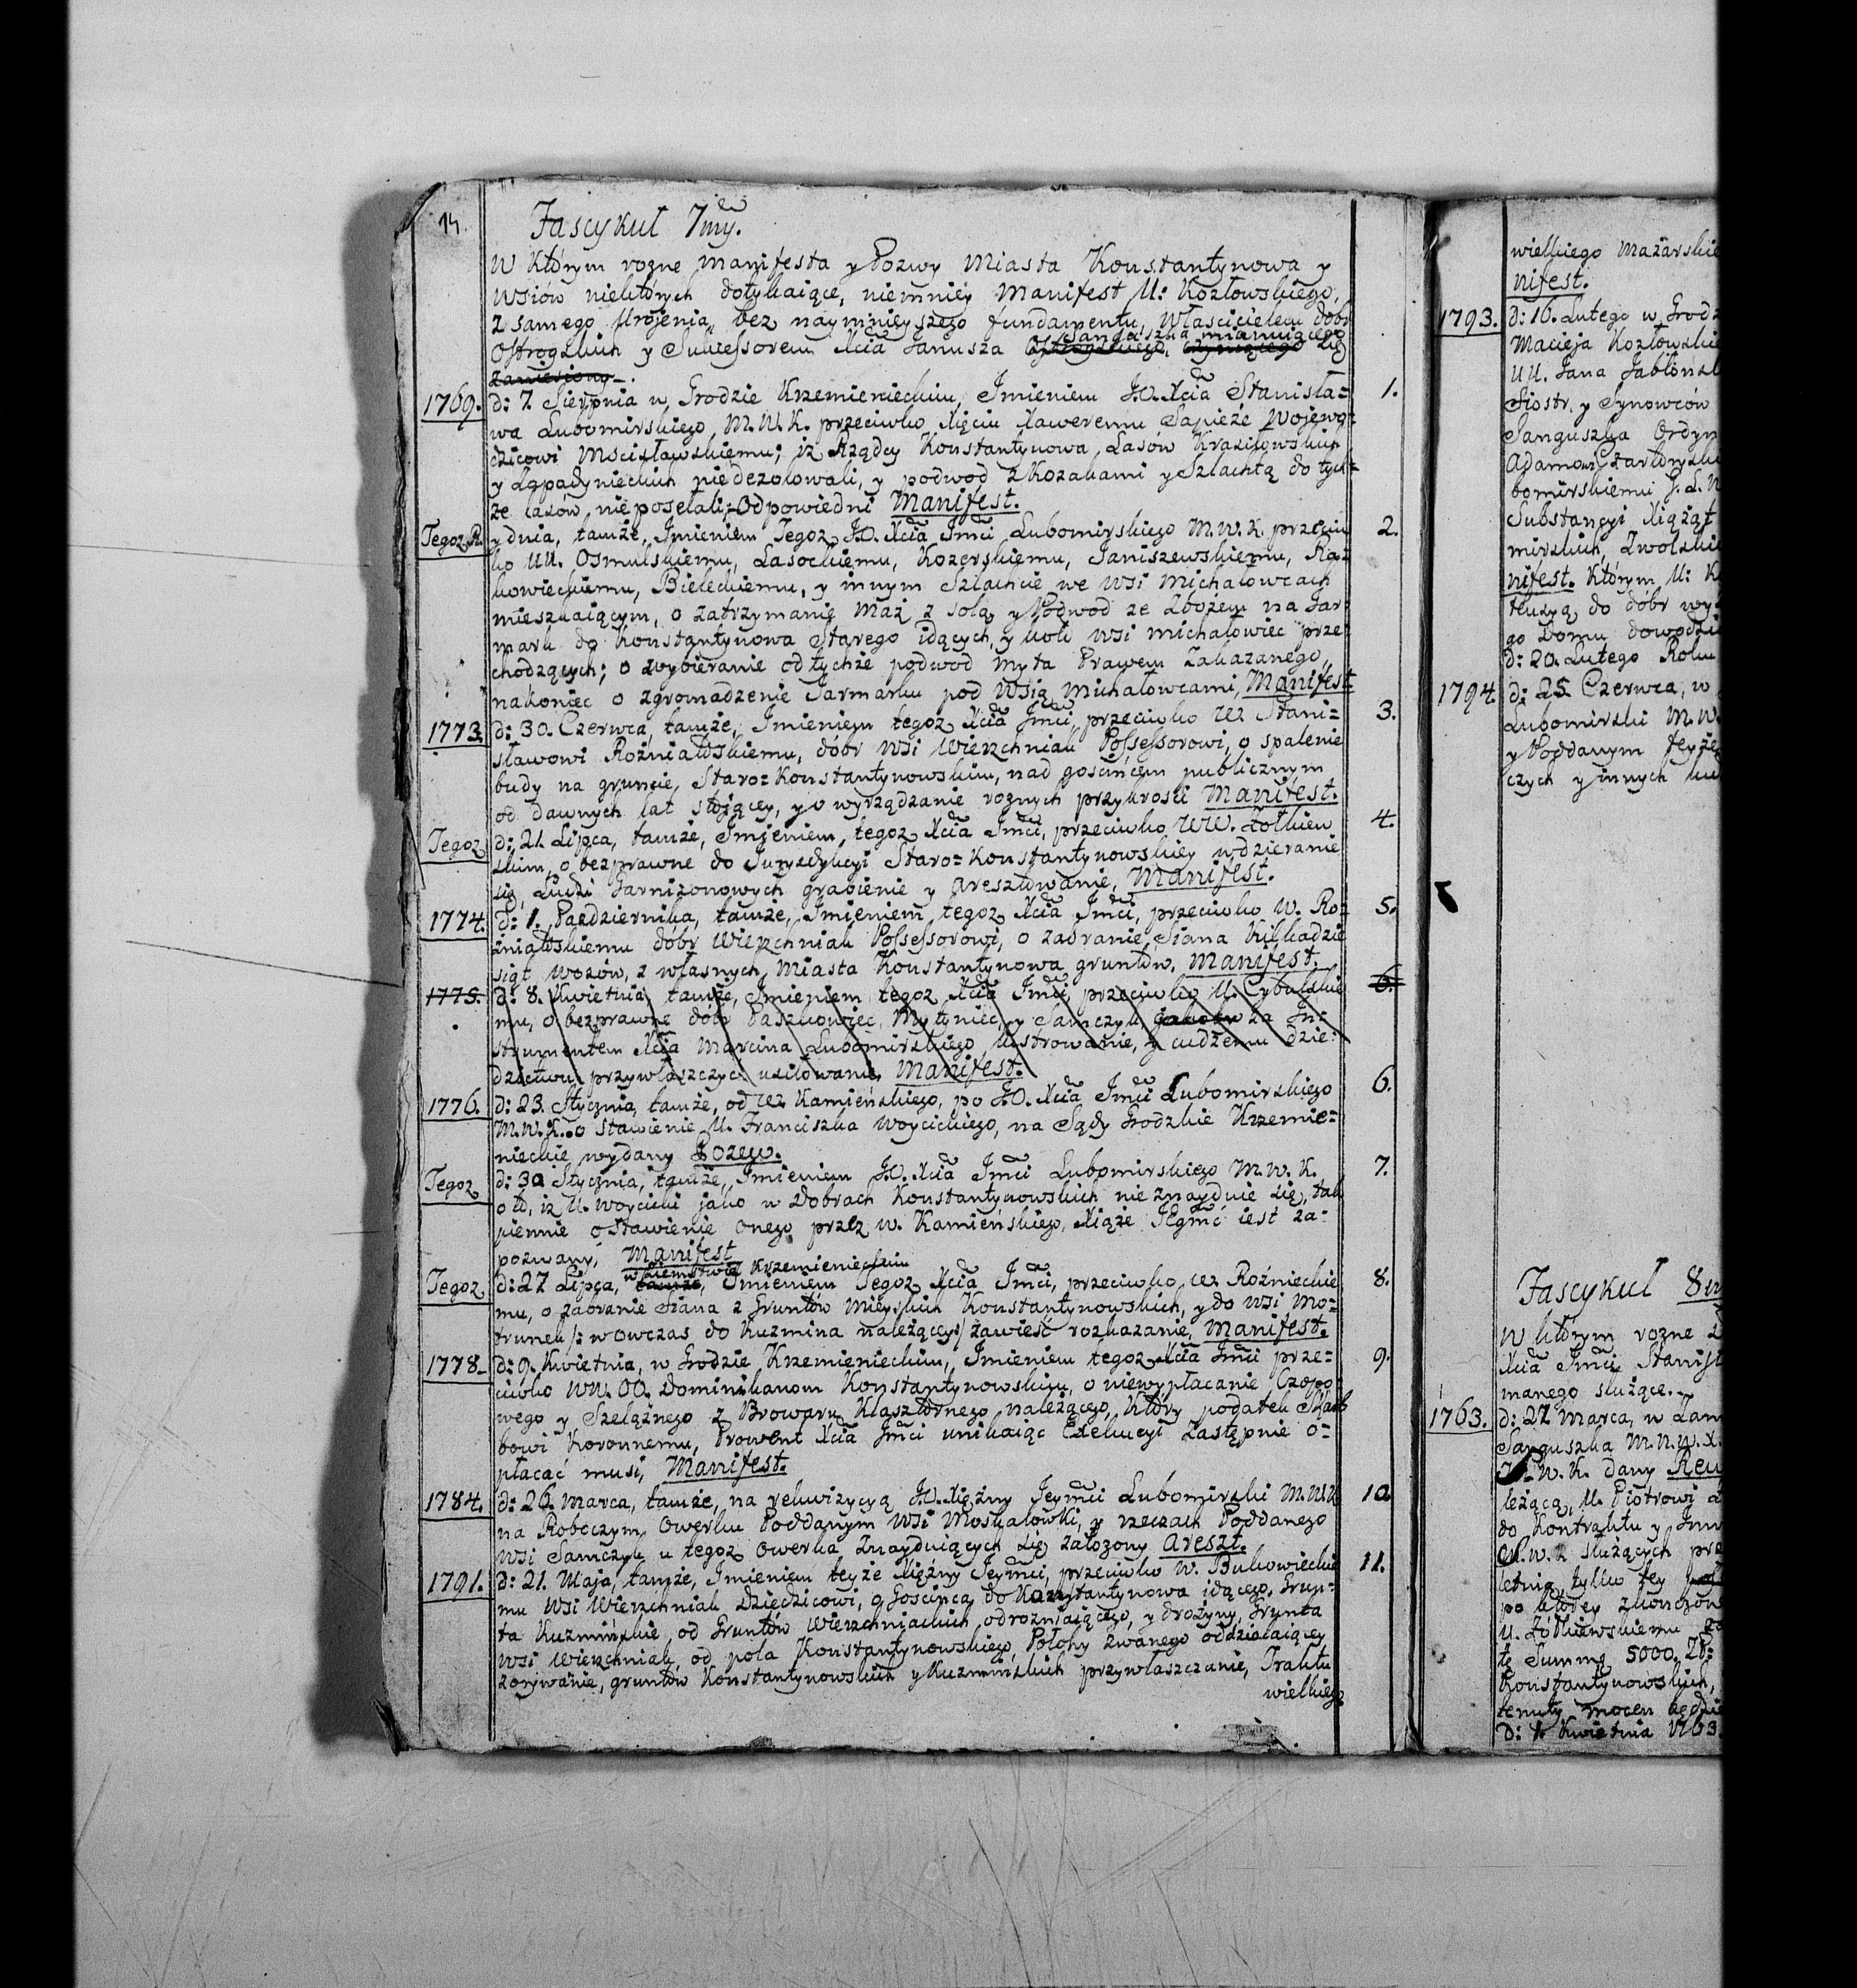 14.
Fascykuł 7my.
W którym rozne manifesta y Pozwy Miasta Konstantynowa y
Wsiów niektórych dotykaiące, niemniey Manifest U: Kozłowskiego,
z samego Urojenia, bez naymnieyszego fundamentu, Włascicielem dobr
Sanguszka mianuiącego
Ostrogskich y Sukcessorem Xcia Janusza Ostrogskiego, czyniącego się
zaniesiony.
1769. d: 7 Sierpnia w Grodzie Krzemienieckim, Imieniem J.O. Xcia Stanisła= 1.
wa Lubomirskiego, M.W.K. przeciwko Xięciu Xaweremu Sapieże Wojewo=
dzicowi Mscisławskiemu; iż Rządcy Konstantynowa, Lasów Krasiłowskich
y Łapadynieckich niedezolowali, y podwod z Kozakami y Szlachtą do tych=
że lasów nieposełali; Odpowiedni Manifest.
Tegoż R. y dnia, tamże, Imieniem Tegoż J.O. Xcia Imci Lubomirskiego M.W.K. przeciw 2.
ko UU. Osmulskiemu, Lasockiemu, Kozerskiemu, Janiszewskiemu, Ra=
kowieckiemu, Bieleckiemu, y innym Szlachcie we Wsi Michałowcach
mieszkaiącym, o zatrzymanie Maż z solą y Podwod ze Zbożem na Jar=
mark do Konstantynowa Starego idących, y koło Wsi Michałowiec prze=
chodzących; o wybieranie od tychże podwod Myta Prawem Zakazanego,
nakoniec o zgromadzenie Jarmarku pod Wsią Michałowcami, Manifest
1773. d: 30. Czerwca, tamże, Imieniem tegoż Xcia Imci, przeciwko Wz Stani= 3.
sławowi Rożniatowskiemu, dóbr Wsi Wierzchniak Possessorowi, o spalenie
budy na gruncie, Staro=Konstantynowskim, nad gościńcem publicznym
od dawnych lat stojącey, y o wyrządzanie roznych przykrosci Manifest.
Tegoż d: 21. Lipca, tamże, Imieniem, tegoż Xcia Imci, przeciwko WW. Żołkiew 4.
skim, o bezprawne do Juryzdykcyi Staro=Konstantynowskiey wdzieranie
się, Ludzi Garnizonowych grabienie y Aresztowanie, Manifest.
1774. d: 1. Pazdziernika, tamże, Imieniem tegoż Xcia Imci, przeciwko W. Roz= 5.
źniatowskiemu dóbr Wierzchniak Possessorowi, o zabranie Siana kilkadzie
siąt wozów, z własnych Miasta Konstantynowa gruntów, Manifest.
1775. d: 8. Kwietnia, tamże, Imieniem tegoż Xcia Imci przeciwko U. Cybulskie 6.
mu, o bezprawne dóbr Paszkowiec, Mytyniec, y Samczyk, za In=
strumentem Xcia Marcina Lubomirskiego lustrowanie, y cudzemu dzie=
dzictwu przywłaszczyć usiłowanie, Manifest.
1776. d: 23. Stycznia, tamże, od Wz Kamieńskiego, po J.O. Xcia Imci Lubomirskiego 6.
M.W.K. o stawienie U. Franciszka Woycickiego, na Sądy Grodzkie Krzemie=
nieckie wydany Pozew.
Tegoż d: 30 Stycznia, tamże, Imieniem J.O. Xcia Imci Lubomirskiego M.W.K. 7.
o to, iż U. Woycicki jako w Dobrach Konstantynowskich nie znayduie się, tak
o stawienie onego przez W. Kamieńskiego, Xiąże JEgmć iest za=
pozwany, Manifest
w Ziemstwie Krzemienieckim
Tegoż d: 27 Lipca, tamże, Imieniem Tegoż Xcia Imci, przeciwko Wz Roźnieckie 8.
mu, o zabranie Siana z Gruntów Mieyskich Konstantynowskich, y do Wsi Mo=
trunek /: wowczas do Kuzmina należącey:/ zawieść rozkazanie, Manifest.
1778. d: 9. Kwietnia, w Grodzie Krzemienieckim, Imieniem tegoż Xcia Imci prze= 9.
ciwko WW. OO. Dominikanom Konstantynowskim, o niewypłacanie Czopo=
wego y Szelężnego z Browaru Klasztornego należącego, który podatek Skar=
bowi Koronnemu, Prowent Xcia Imci unikaiąc Exekucyi zastępnie o=
płacać musi, Manifest.
1784. d: 26. Marca, tamże, na rekwizycyą J.O. Xiężny Jeymci Lubomirski M.W.K. 10.
na Roboczym Owerku Poddanym Wsi Moskalowki, y rzeczach Poddanego
Wsi Samczyk u tegoż Owerka znayduiących się założony Areszt.
1791. d: 21. Maja, tamże, Imieniem teyże Xiężny Jeymci, przeciwko W. Bukowieckie 11.
mu Wsi Wierzchniak Dziedzicowi, o Gościńca do Konstantynowa idącego, Grun=
ta Kuzmińskie od Gruntów Wierzchniackich odrozniaiącego, y drożyny, Grunta
Wsi Wierzchniak od pola Konstantynowskiego Połohy zwanego oddzielaiącey
zorywanie, gruntów Konstantynowskich y Kuzmińskich przywłaszczanie, Traktu
wielkiego
wielkiego Mazarskie
nifest.
1793. d: 16. Lutego w Grodz
Macieja Kozłowskie
UU. Jana Jabłońsk
Siostr, y Synowców
Sanguszka Ordyn
Adamowi Czartoryski
bomirskiemu
Substancyi Xiążąt
mirskich, Zwolskie
nifest. Którym U: K
do dóbr wy
go Domu dowodzi
d: 20. Lutego Roku
1794. d: 25. Czerwca, w
Lubomirski M.W.
y Poddanym teyże
czych y innych
Fascykuł 8
W którym rozne
Xcia Imci Stanisł
manego służące.
1763. d: 27 Marca, w Zam
Sanguszka M.N.W.X.
M.W.K. dany Rew
leżącą, U. Piotrowi
do Kontraktu y
M.W.K służących prz
letnią, tylko tey
po ktorey
U. Żółkiewskiemu
tę Summę 5000. Zł:
Konstantynowskich,
tenuty mocen będzie
d: 1 Kwietnia 1763.